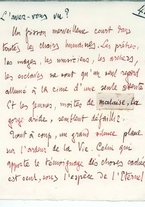 L'avez-vous vu?
Un frisson merveilleux court dans
toutes les choses humaines. Les prêtres,
les mages, les musiciens, les archers,
les oiseaux ne sont qu'un seul regard
allumé à la cime d'une seule attente
Et les jeunes mortes de malaise, la
gorge aride, semblent défaillir.
Tout à coup, un grand silence plane
sur l'ardeur de la Vie. Celui qui
apporte le témoignage des choses cachées
est seul, sous l'espèce de l'Éternel